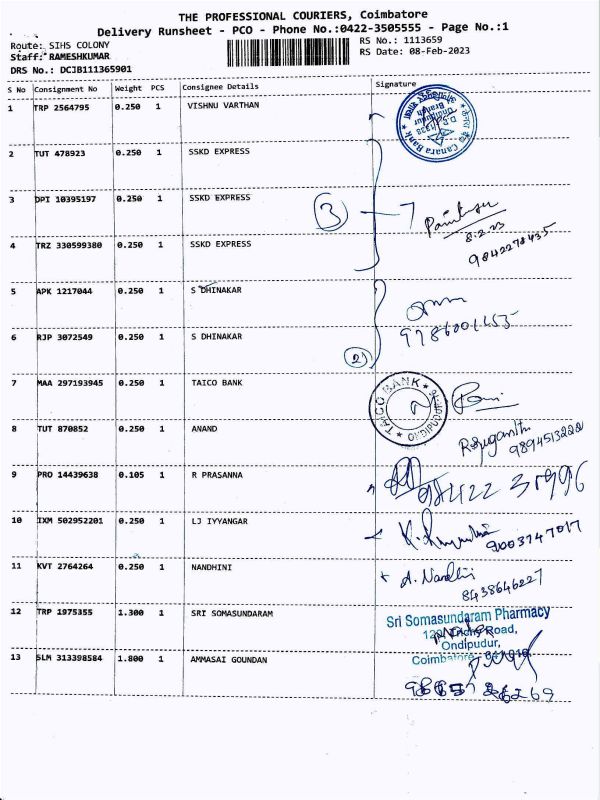 THE PROFESSIONAL COURIERS, Coimbatore
Delivery Runsheet - PCO - Phone No.:0422-3505555 - Page No.:1
Route: SIHS COLONY
Staff: RAMESHKUMAR
DRS No.: DCJB111365901
RS No.: 1113659
RS Date: 08-Feb-2023
S No Consignment No Weight PCS Consignee Details Signature
1 TRP 2564795 0.250 1 VISHNU VARTHAN
Canara Bank
2 TUT 478923 0.250 1 SSKD EXPRESS
3 DPI 10395197 0.250 1 SSKD EXPRESS
3
8.2.23
9842278435
4 TRZ 330599380 0.250 1 SSKD EXPRESS
5 APK 1217044 0.250 1 S DHINAKAR
6 RJP 3072549 0.250 1 S DHINAKAR
2
7 MAA 297193945 0.250 1 TAICO BANK
TAICO BANK
8 TUT 870852 0.250 1 ANAND
9894513222
9 PRO 14439638 0.105 1 R PRASANNA
10 IXM 502952201 0.250 1 LJ IYYANGAR
9003747017
11 KVT 2764264 0.250 1 NANDHINI
A. Nandhini
8438646227
12 TRP 1975355 1.300 1 SRI SOMASUNDARAM
Sri Somasundaram Pharmacy
Trichy Road,
Ondipudur,
Coimbatore
13 SLM 313398584 1.800 1 AMMASAI GOUNDAN